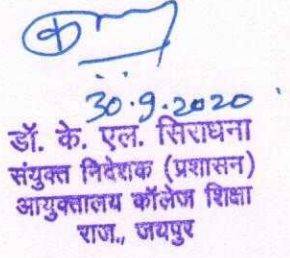 30.9.2020
डॉ. के. एल. सिराधना
संयुक्त निदेशक (प्रशासन)
आयुक्तालय कॉलेज शिक्षा
राज., जयपुर